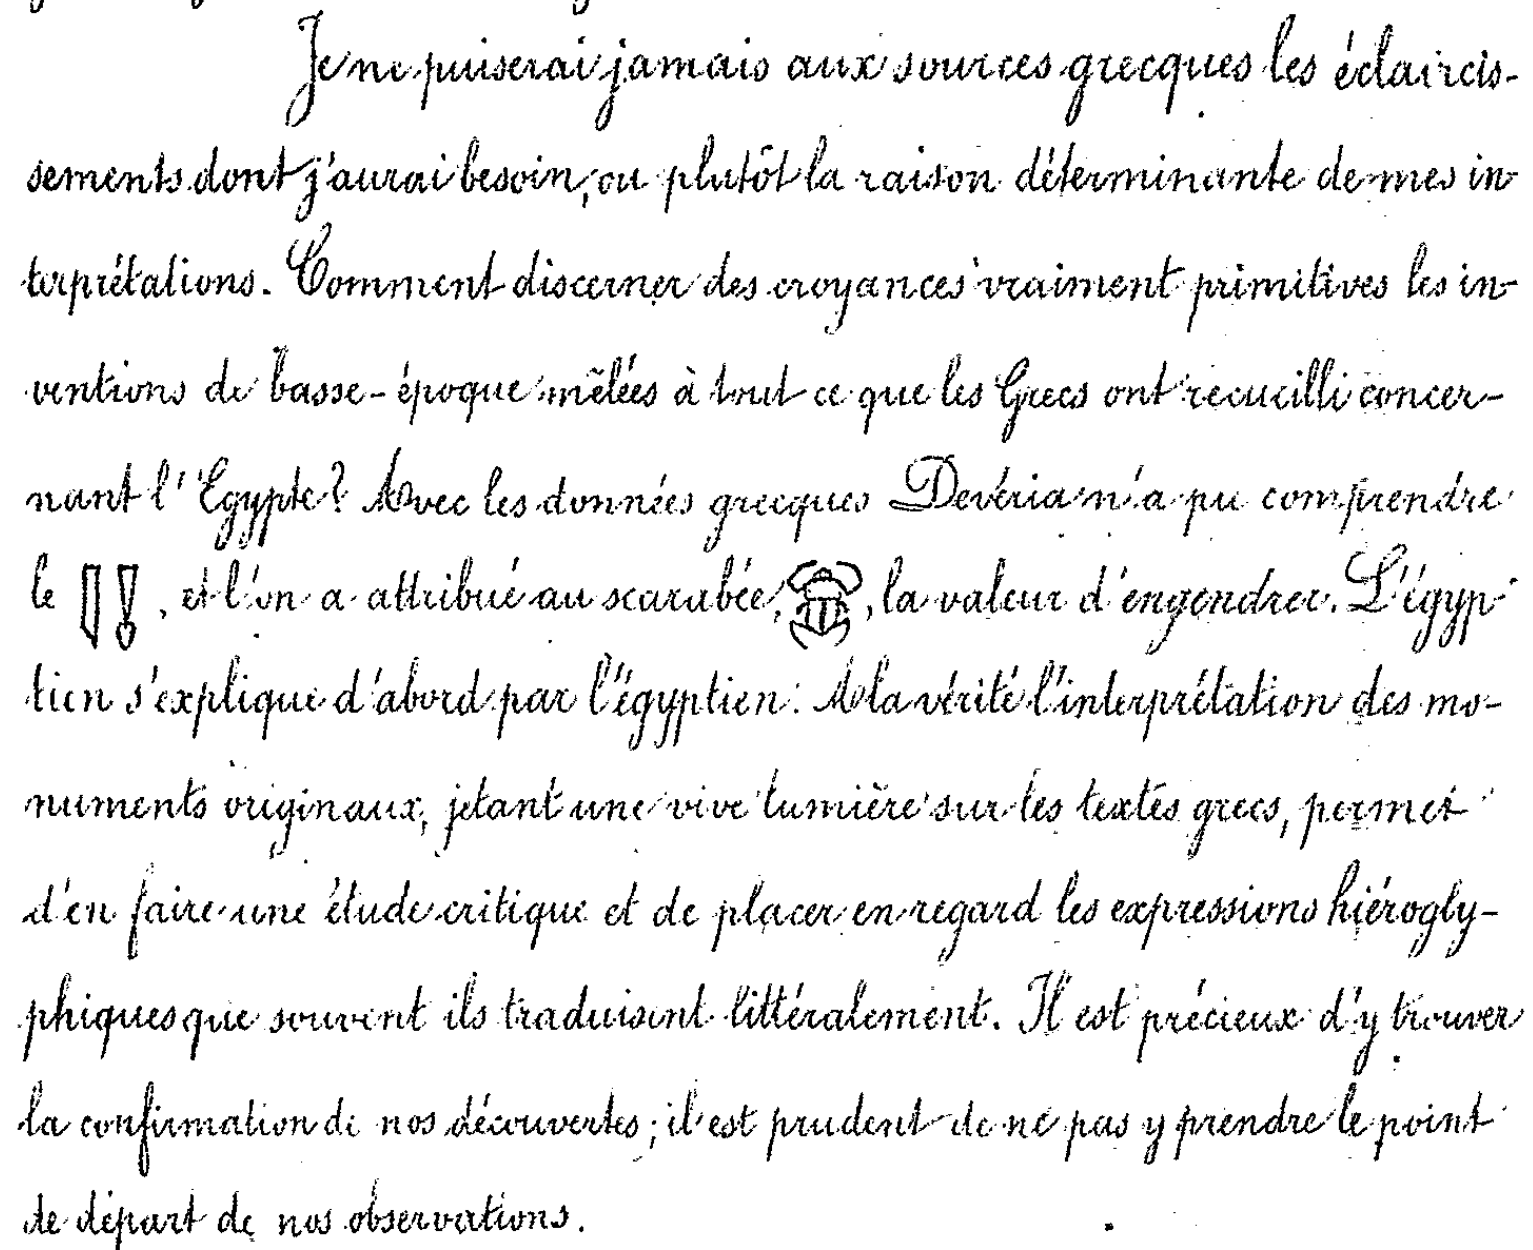 Je ne puiserai jamais aux sources grecques les éclaircis-
sements dont j'aurai besoin, ou plutôt la raison déterminante de mes in-
terprétations. Comment discerner des croyances vraiment primitives les in-
ventions de basse-époque mêlées à tout ce que les Grecs ont recueilli concer-
nant l'Egypte? Avec les données grecques Devéria n'a pu comprendre
le 𓐙𓊤, et l'on a attribué au scarabée, 𓆣, la valeur d'engendrer. L'égyp-
tien s'explique d'abord par l'égyptien. A la vérité l'interprétation des mo-
numents originaux, jetant une vive lumière sur les textes grecs, permet
d'en faire une étude critique et de placer en regard les expressions hiérogly-
phiques que souvent ils traduisent littéralement. Il est précieux d'y trouver
la confirmation de nos découvertes; il est prudent de ne pas y prendre le point
de départ de nos observations.